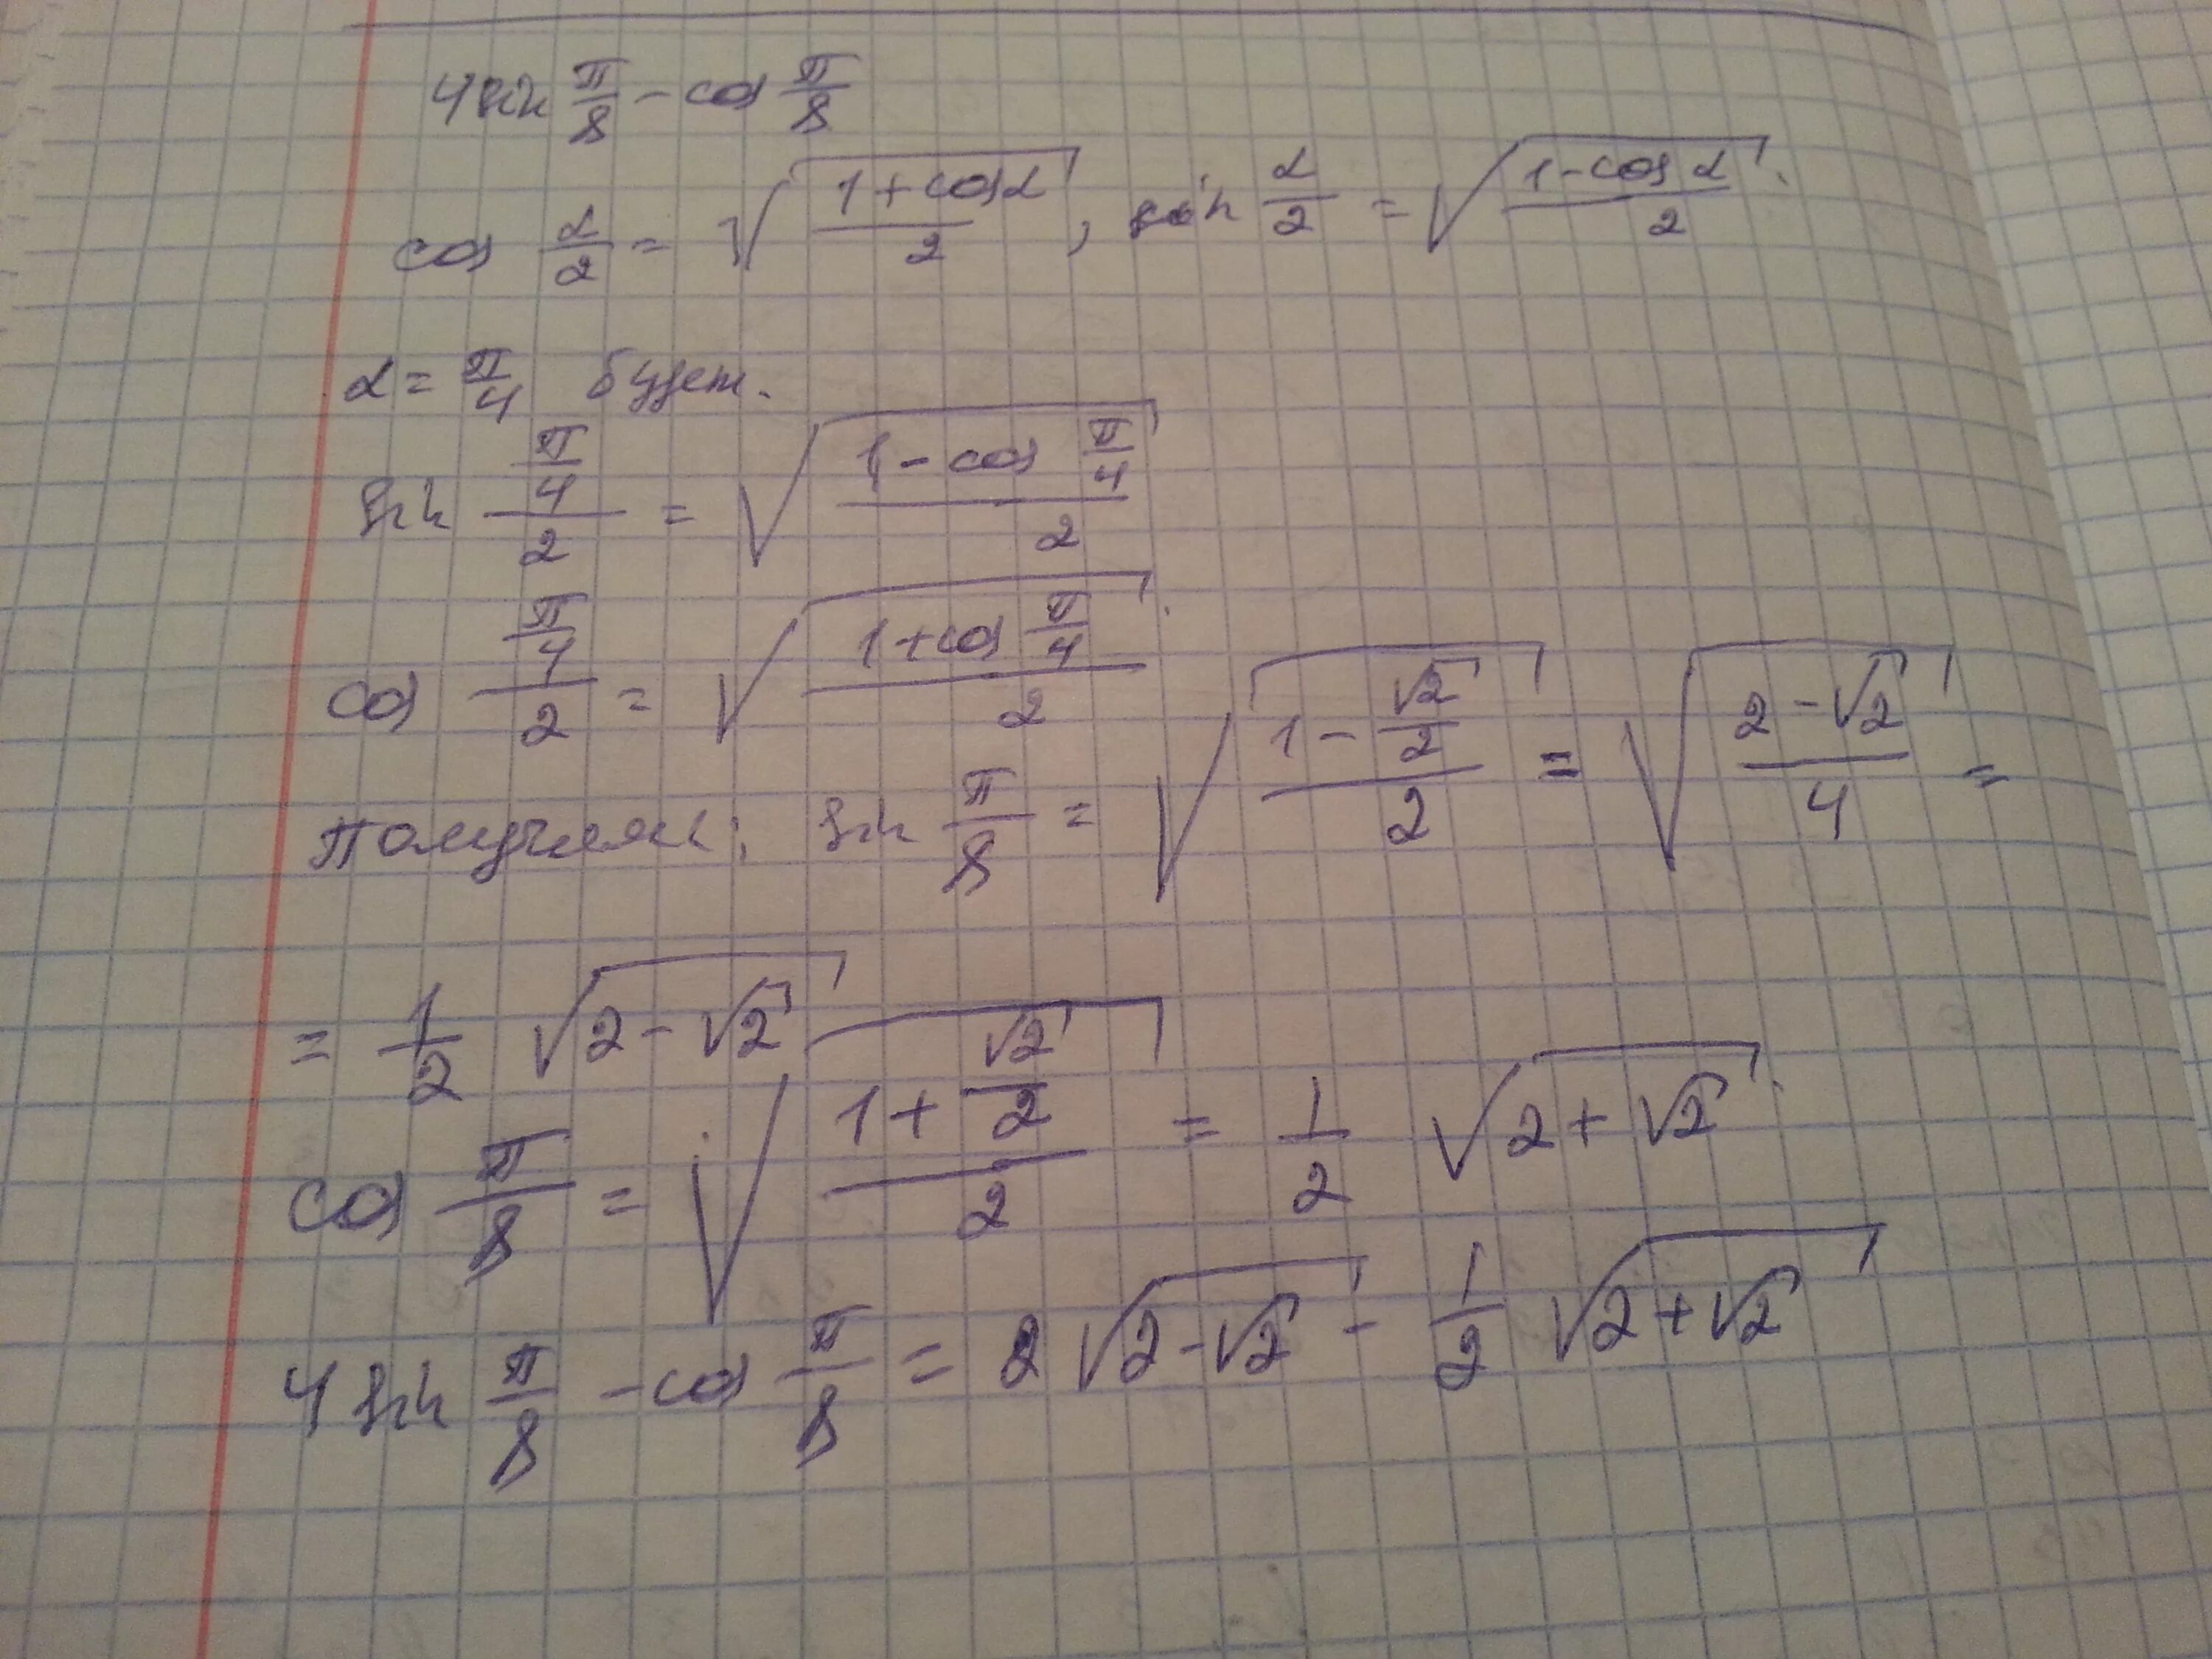 4 sin π/8 - cos π/8
cos α/2 = √((1 + cos α)/2), sin α/2 = √((1 - cos α)/2).
α = π/4 будет.
sin (π/4)/2 = √((1 - cos π/4)/2)
cos (π/4)/2 = √((1 + cos π/4)/2).
Получили: sin π/8 = √((1 - √2/2)/2) = √((2 - √2)/4) =
= 1/2 √(2 - √2)
cos π/8 = √((1 + √2/2)/2) = 1/2 √(2 + √2).
4 sin π/8 - cos π/8 = 2 √(2 - √2) - 1/2 √(2 + √2)